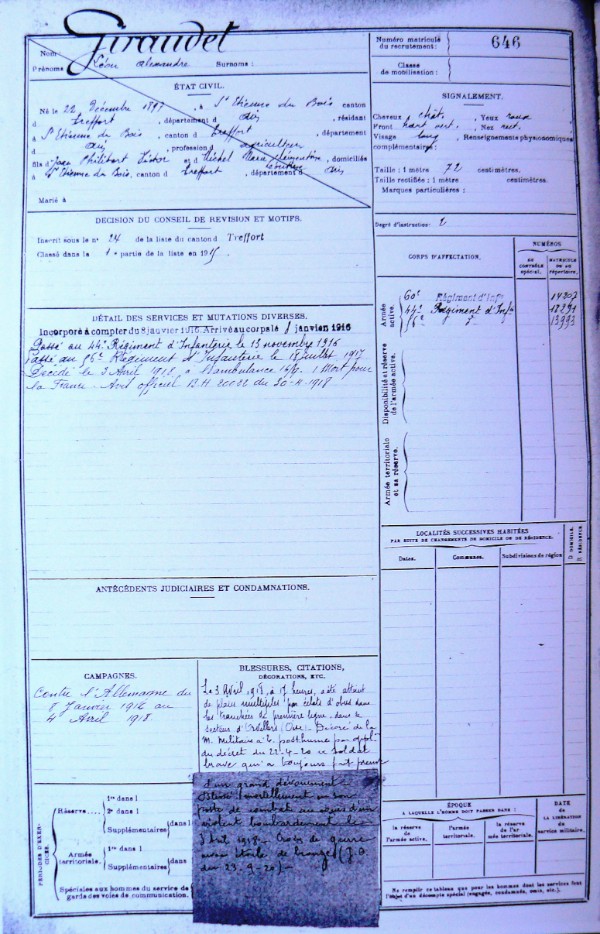 Giraudet
Nom
Prénoms Alexandre Surnoms :
ÉTAT CIVIL.
Né le 22 Décembre 1897, à St Etienne du Bois canton
d Treffort, département d Ain, résidant
à St Etienne du Bois, canton d Treffort, département
d Ain, profession d agriculteur
fils d Philibert et Marie Clémentine, domiciliés
à St Etienne du Bois, canton d Treffort, département d Ain
Marié à
DÉCISION DU CONSEIL DE RÉVISION ET MOTIFS.
Inscrit sous le n° 24 de la liste du canton d Treffort
Classé dans la 1e partie de la liste en 191
DÉTAIL DES SERVICES ET MUTATIONS DIVERSES.
Incorporé à compter du 8 janvier 1916. Arrivé au corps le janvier 1916
Passé au 44e Régiment d'Infanterie le 13 novembre 1916
Passé au 56e Régiment d'Infanterie le 18 juillet 1917
Décédé le 3 Avril 1918, à l'ambulance Mort pour
la France - Avis officiel du 30-4-1918
ANTÉCÉDENTS JUDICIAIRES ET CONDAMNATIONS.
CAMPAGNES.
Contre l'Allemagne du
8 Janvier 1916 au
4 Avril 1918.
BLESSURES, CITATIONS,
DÉCORATIONS, ETC.
Le 3 Avril 1918, à 17 heures, a été atteint
de plaies multiples par éclats d'obus dans
les tranchées de première ligne, dans le
secteur d'Orvillers (Oise). Décoré de la
M. Militaire à t. posthume par appl.
du décret du 22-4-20 soldat
brave qui a toujours fait preuve
d'un grand dévouement.
Blessé mortellement à son
poste de combat au cours d'un
violent bombardement le
Avril 1918. Croix de guerre
avec étoile de bronze (J.O.
du 23.9.20)
PÉRIODES D'EXERCICES.
Réserve
1re dans l
2e dans l
Supplémentaires dans l
Armée territoriale.
1re dans l
Supplémentaires dans
Spéciales aux hommes du service de
garde des voies de communication.
Numéro matricule
du recrutement: 646
Classe
de mobilisation:
SIGNALEMENT.
Cheveux chât. Yeux
Front vert. Nez rect.
Visage long, Renseignements physionomiques
complémentaires:
Taille : 1 mètre 72 centimètres.
Taille rectifiée : 1 mètre centimètres.
Marques particulières :
Degré d'instruction: 2
CORPS D'AFFECTATION.
NUMÉROS
AU CONTRÔLE spécial.
MATRICULE OU AU répertoire.
Armée active.
60e Régiment d'Inf
44e Régiment d'Infie
56e d°
Disponibilité et réserve de l'armée active.
Armée territoriale et sa réserve.
LOCALITÉS SUCCESSIVES HABITÉES
PAR SUITE DE CHANGEMENTS DE DOMICILE OU DE RÉSIDENCE.
Dates.
Communes.
Subdivisions de région.
D. DOMICILE.
R. RÉSIDENCE.
ÉPOQUE
À LAQUELLE L'HOMME DOIT PASSER DANS :
DATE
de
LA LIBÉRATION
du
service militaire.
la réserve de l'armée active.
l'armée territoriale.
la réserve de l'armée territoriale.
Ne remplir ce tableau que pour les hommes dont les services font
l'objet d'un décompte spécial (engagés, condamnés, omis, etc.).